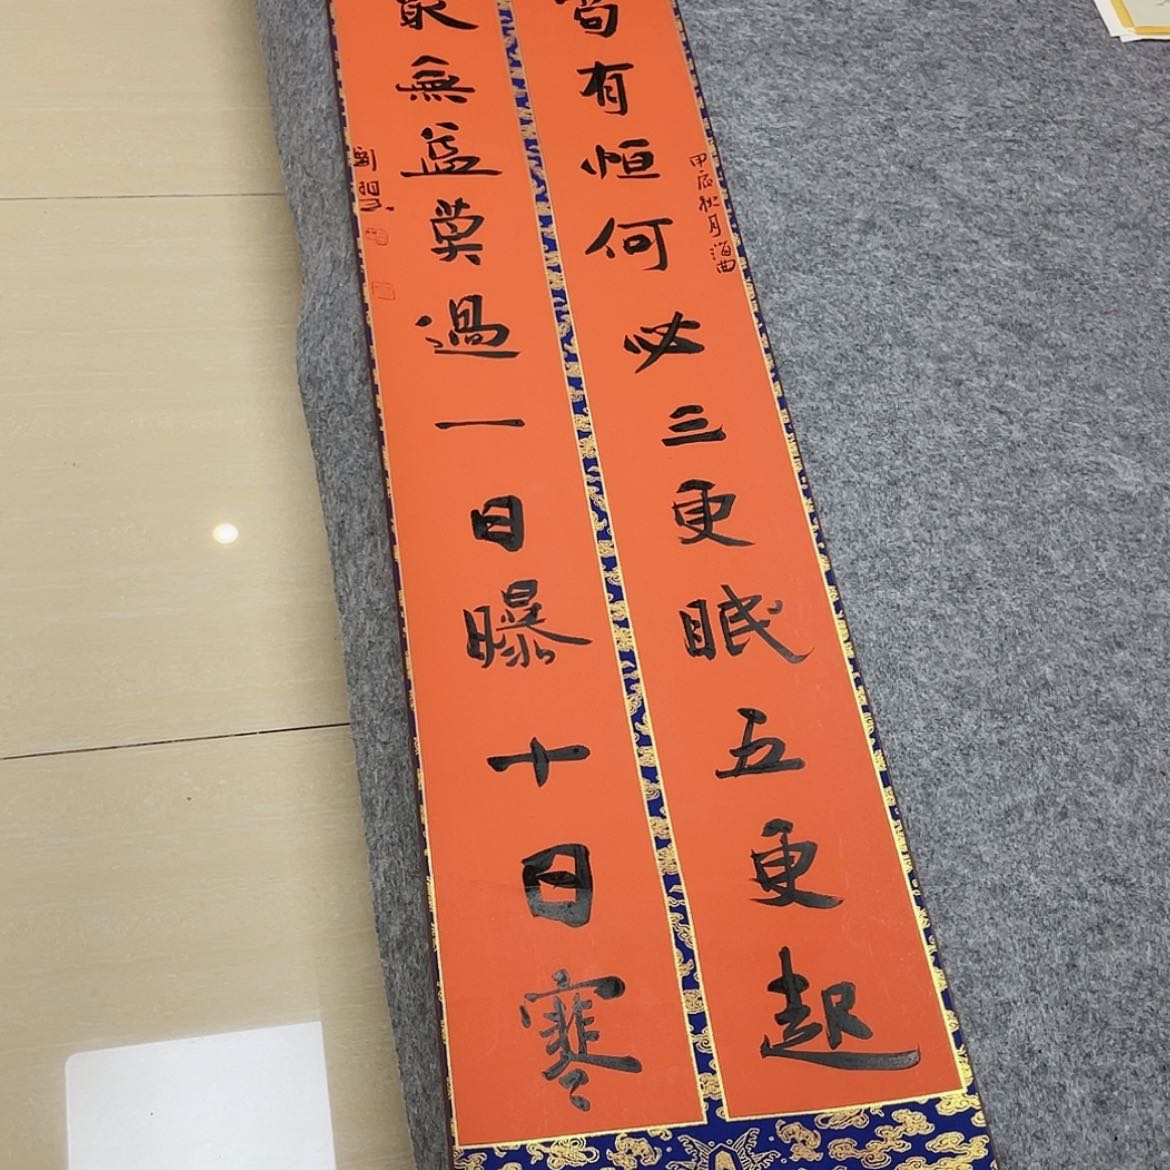 苟有恒何必三更眠五更起
甲辰秋月
最無益莫過一日曝十日寒